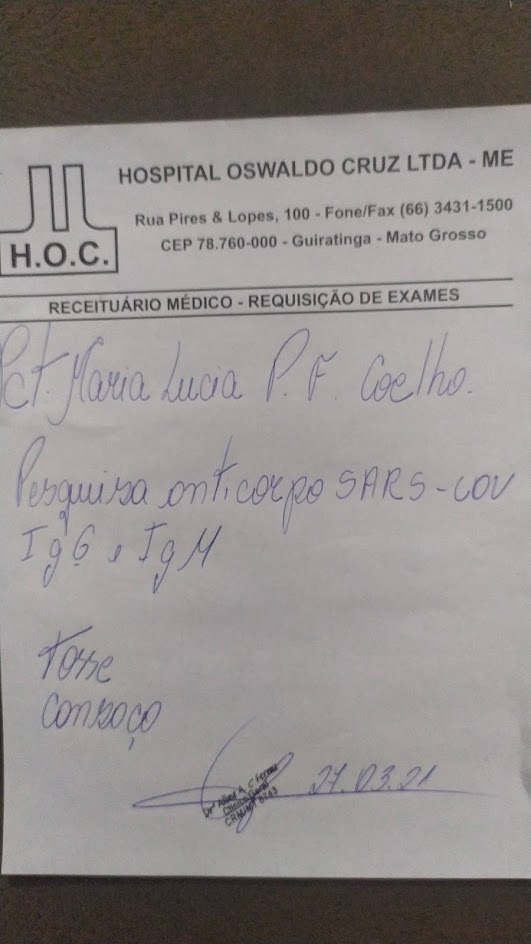 HOSPITAL OSWALDO CRUZ LTDA - ME
Rua Pires & Lopes, 100 - Fone/Fax (66) 3431-1500
CEP 78.760-000 - Guiratinga - Mato Grosso
H.O.C.
RECEITUÁRIO MÉDICO - REQUISIÇÃO DE EXAMES
Pct. Maria Lucia P. F. Coelho.
Pesquisa anticorpo SARS-COV
IgG e IgM
Tosse
Cansaço
27.03.21
Drª A. C
Clínica Geral
CRM/MT